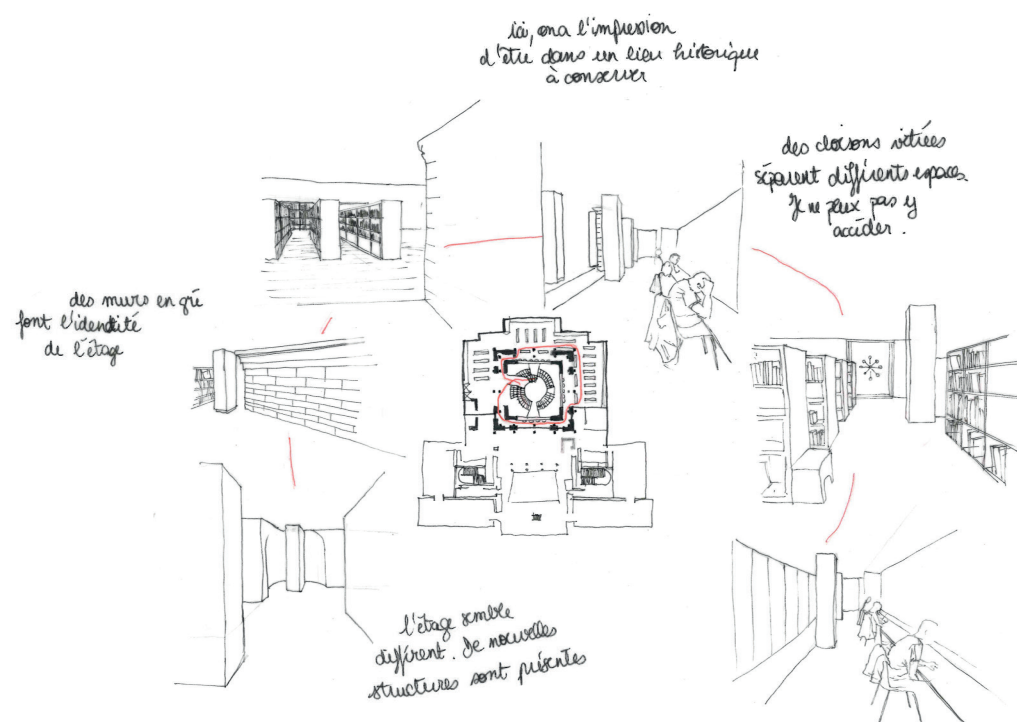 ici, on a l'impression
d'être dans un lieu historique
à conserver
des cloisons vitrées
séparent différents espaces.
Je ne peux pas y
accéder.
des murs en grè
font l'identité
de l'étage
l'étage semble
différent. De nouvelles
structures sont présentes